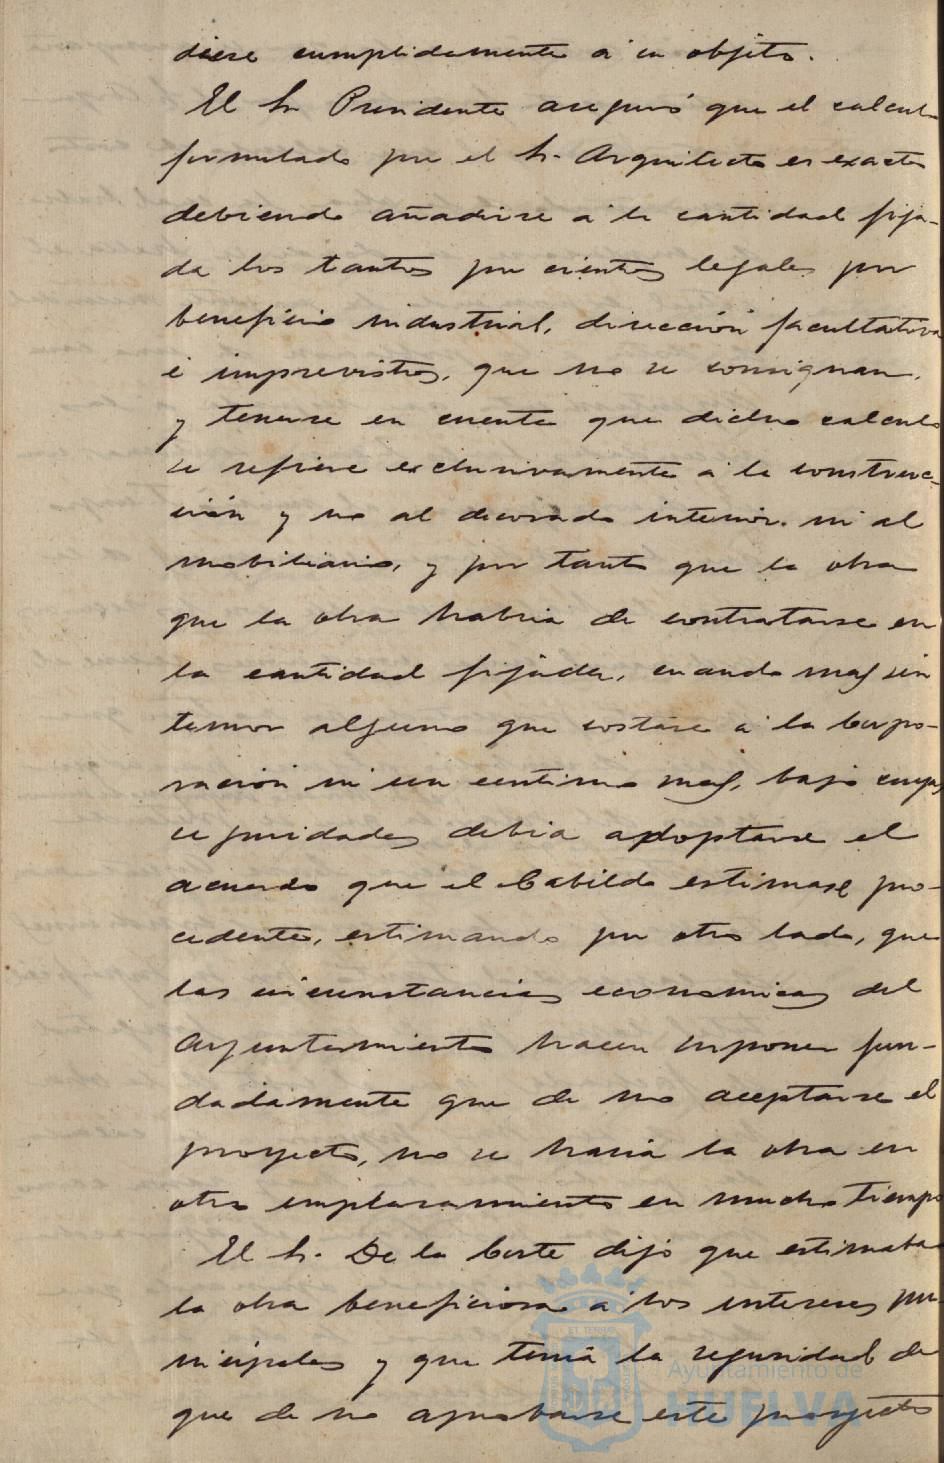 diese cumplidamente á su objeto.
El Sr. Presidente aseguró que el calculo
formulado por el Sr. Arquitecto es exacto
debiendo añadirse á la cantidad fija-
da los tantos por cientos legales por
beneficio industrial, dirección facultativa
é imprevistos, que no se consignan,
y tenerse en cuenta que dicho calculo
se refiere exclusivamente á la construc-
ción y no al decorado interior ni al
mobiliario, y por tanto que la obra
que la obra habria de contratarse en
la cantidad fijada, cuando mas sin
temor alguno que costase á la Corpo-
ración ni un centimo mas, bajo cuyas
seguridades debia adoptarse el
acuerdo que el Cabildo estimase pro-
cedente, estimando por otro lado, que
las circunstancias economicas del
Ayuntamiento hacen suponer fun-
dadamente que de no aceptarse el
proyecto, no se haria la obra en
otro emplazamiento en mucho tiempo
El Sr. De la Corte dijo que estimaba
la obra beneficiosa á los intereses mu-
nicipales y que tenia la seguridad de
que de no aprobarse este proyecto
Ayuntamiento de
HUELVA